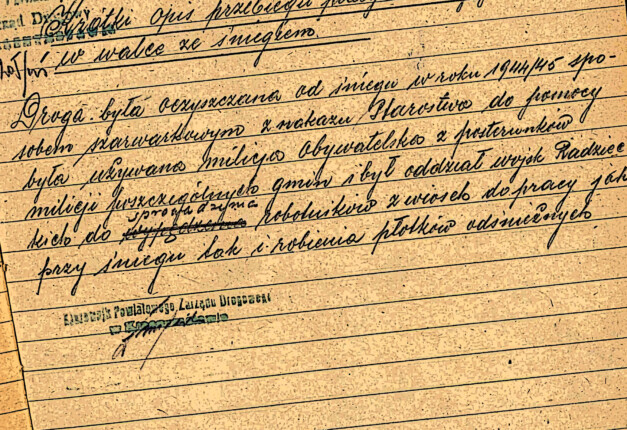 Krótki opis przebiegu
w walce ze śniegiem
Droga była oczyszczana od śniegu w roku 1944/45 spo-
sobem szarwarkowym z nakazu Starostwa do pomocy
była używana milicja Obywatelska z posterunków
milicji poszczególnych gmin i był oddział wojsk Radziec
kich do sprowadzenia robotników z wiosek do pracy jak
przy śniegu tak i robienia płotków odśnieżnych
Powiatowego Zarządu Drogowego